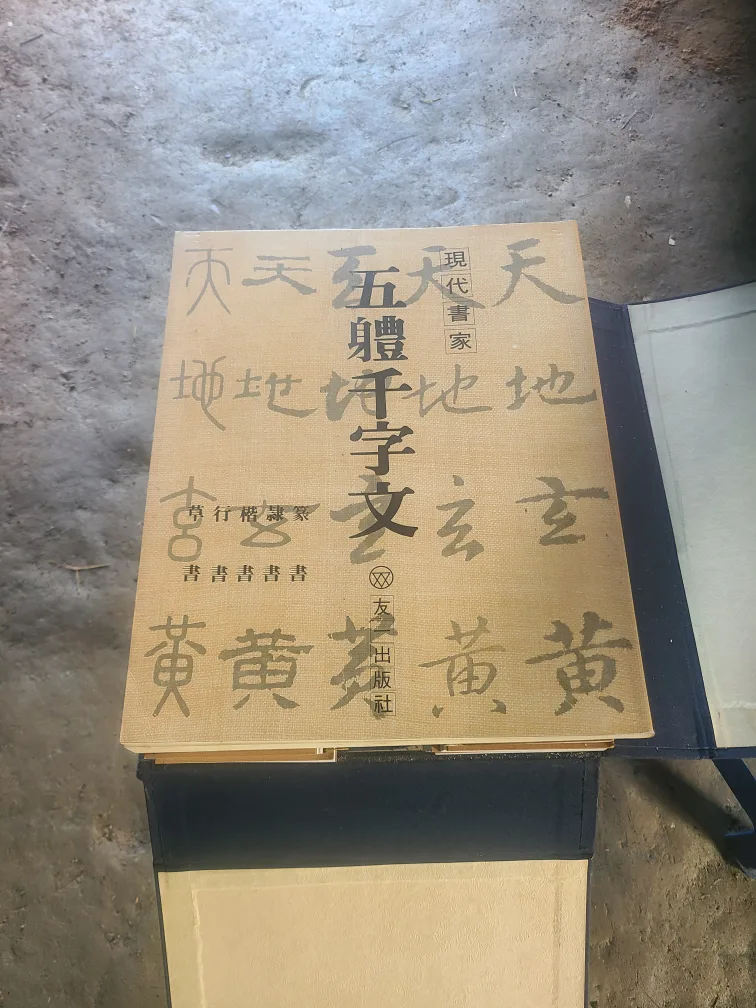 現代書家
五體千字文
友一出版社
篆書
隸書
楷書
行書
草書
天地玄黄
天地玄黄
天地玄黄
天地玄黄
天地玄黃